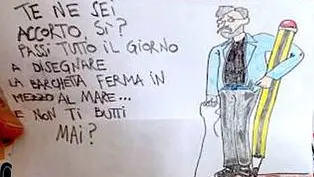 TE NE SEI
ACCORTO, SÌ?
PASSI TUTTO IL GIORNO
A DISEGNARE
LA BARCHETA FERMA IN
MEZZO AL MARE...
E NON TI BUTTI
MAI?